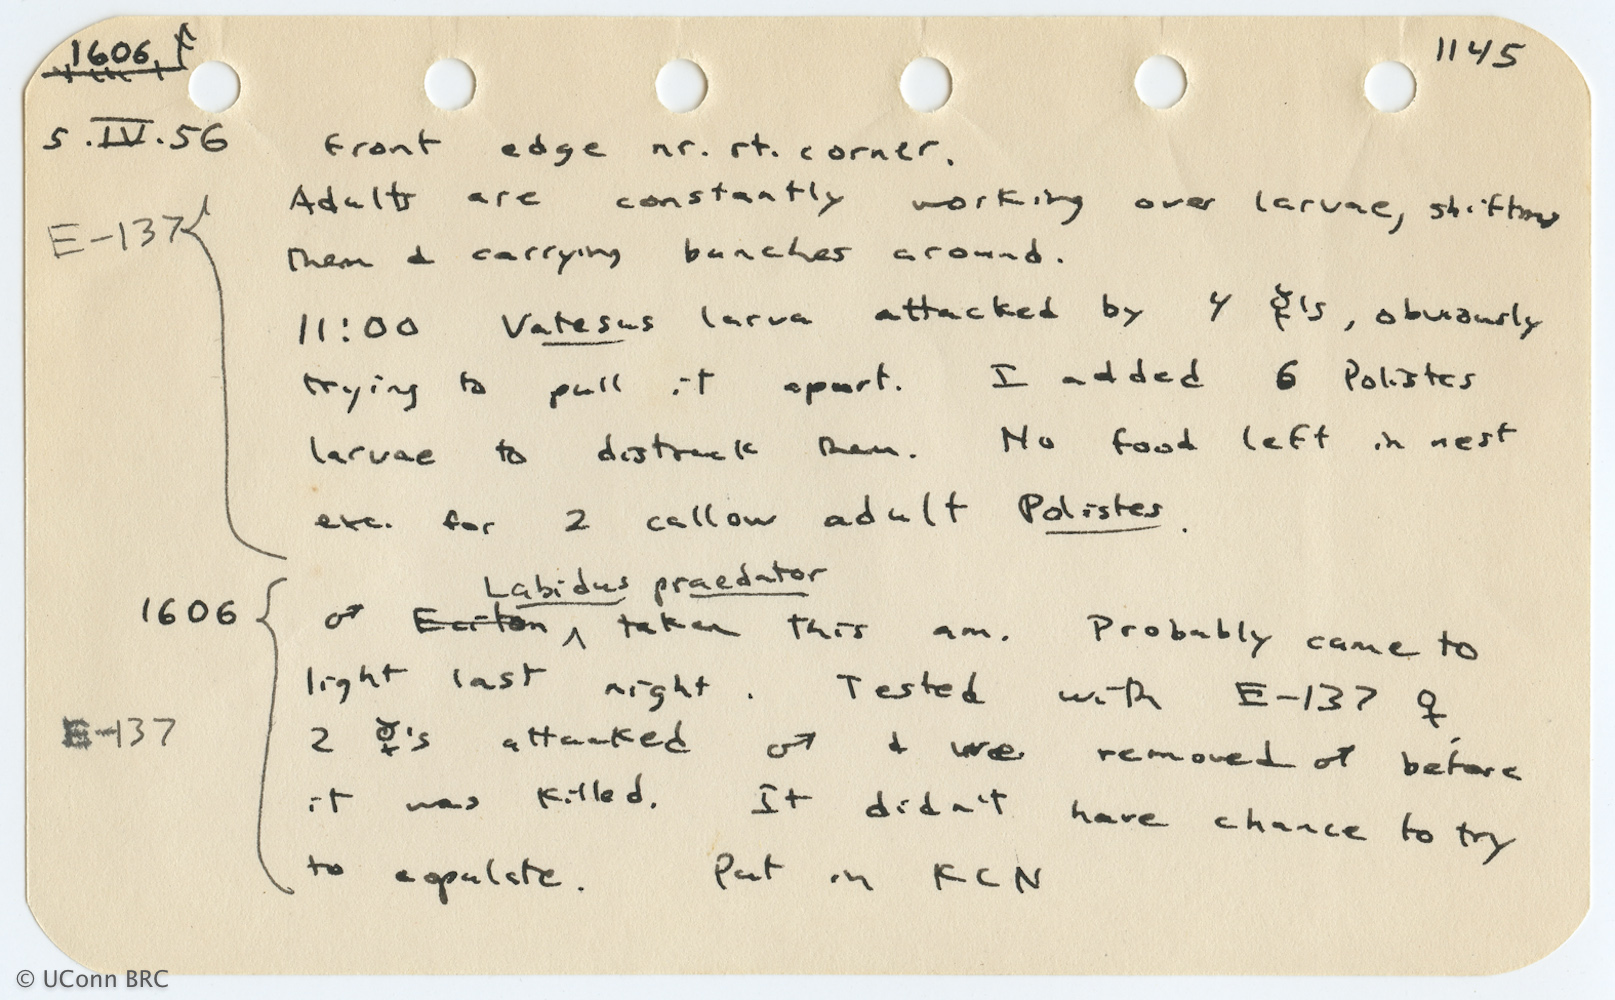 1606
1145
5.IV.56 Front edge nr. rt. corner.
E-137 Adults are constantly working over larvae, shifting
them & carrying bunches around.
11:00 Vatesus larva attacked by 4 ☿'s, obviously
trying to pull it apart. I added 6 Polistes
larvae to distrack them. No food left in nest
exc. for 2 callow adult Polistes.
Labidus praedator
1606 ♂ Eciton ^ taken this am. Probably came to
light last night. Tested with E-137 ♀,
E-137 2 ☿'s attacked ♂ & we removed ♂ before
it was killed. It didn't have chance to try
to copulate. Put in KCN
© UConn BRC